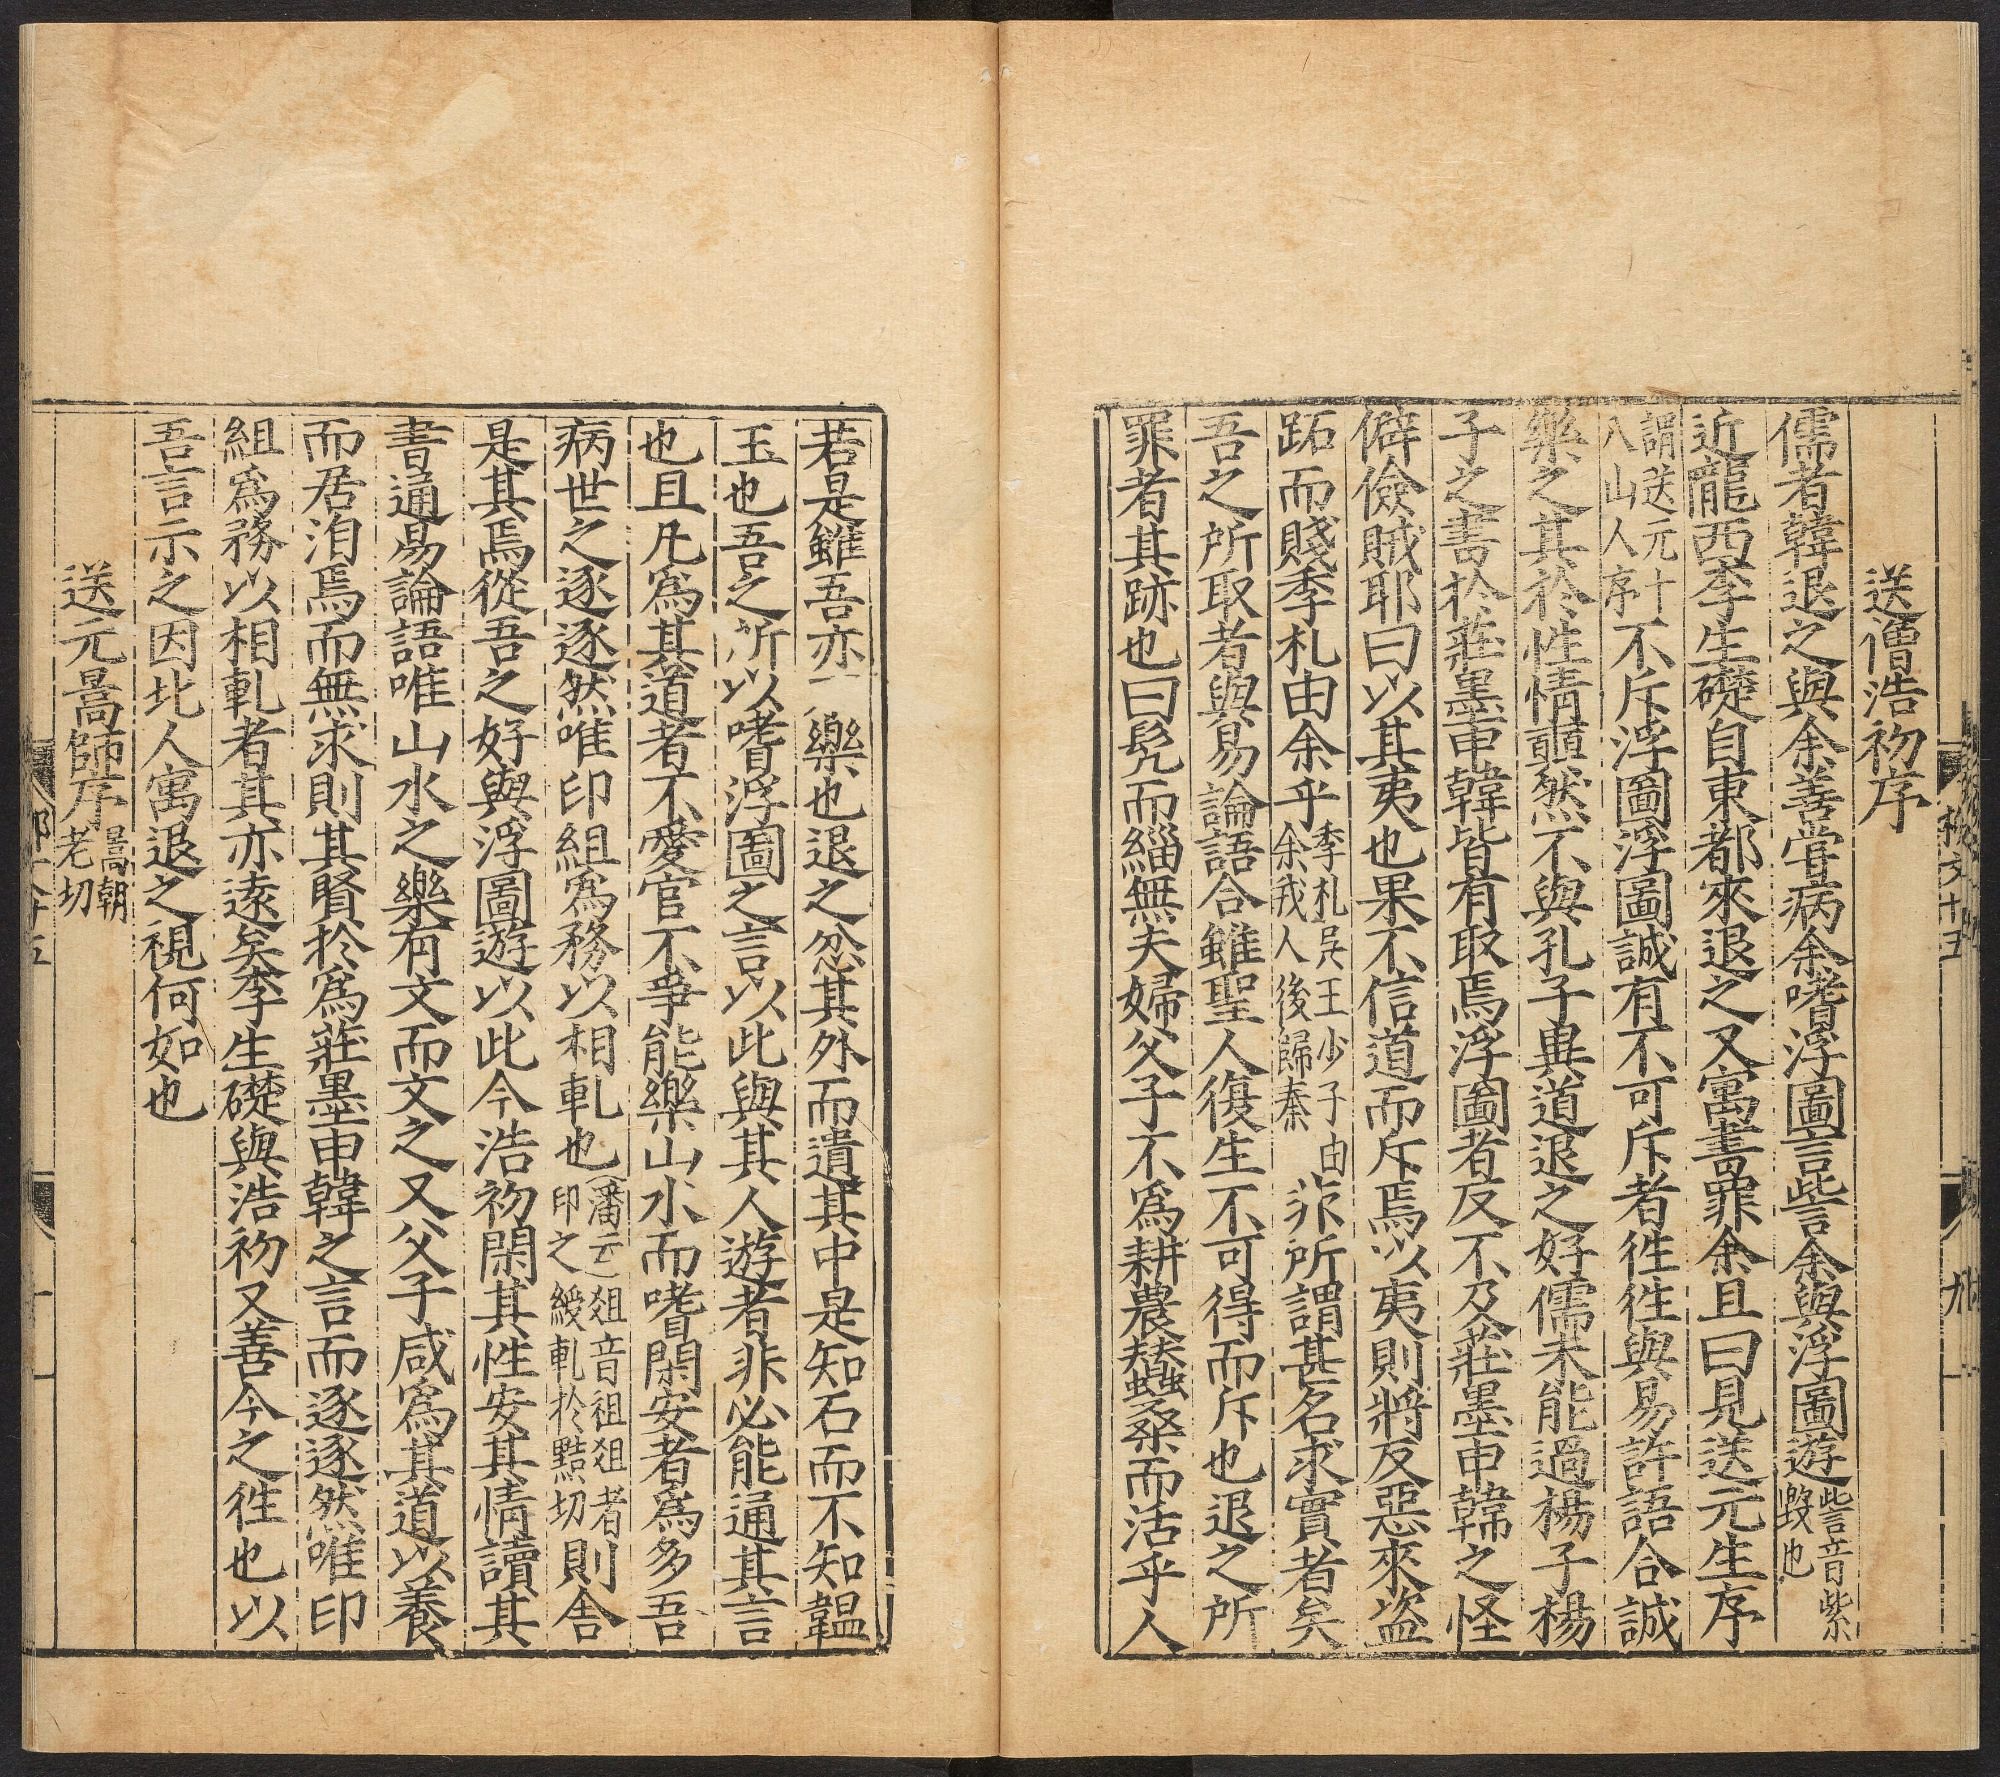 送僧浩初序
儒者韓退之與余善嘗病余嗜浮圖言訾余與浮圖遊訾音紫毀也
近隴西李生礎自東都來退之又寓書罪余且曰見送元生序
謂送元十八山人序不斥浮圖浮圖誠有不可斥者徃徃與易論語合誠
樂之其於性情奭然不與孔子異道退之好儒未能過楊子楊
子之書於莊墨申韓皆有取焉浮圖者反不及莊墨申韓之怪
僻儉賊耶曰以其夷也果不信道而斥焉以夷則將友惡來盜
跖而賤季札由余乎季札吳王少子由余戎人後歸秦非所謂甚名求實者矣
吾之所取者與易論語合雖聖人復生不可得而斥也退之所
罪者其跡也曰髡而緇無夫婦父子不爲耕農蠶桑而活乎人
柳文十五
九
若是雖吾亦不樂也退之忿其外而遺其中是知石而不知韞
玉也吾之所以嗜浮圖之言以此與其人遊者非必能通其言
也且凡爲其道者不愛官不爭能樂山水而嗜閑安者爲多吾
病世之逐逐然唯印組爲務以相軋也潘云組音祖組者印之綬軋於黠切則舍
是其焉從吾之好與浮圖遊以此今浩初閑其性安其情讀其
書通易論語唯山水之樂有文而文之又父子咸爲其道以養
而居泊焉而無求則其賢於爲莊墨申韓之言而逐逐然唯印
組爲務以相軋者其亦遠矣李生礎與浩初又善今之徃也以
吾言示之因北人寓退之視何如也
送元暠師序暠朝老切